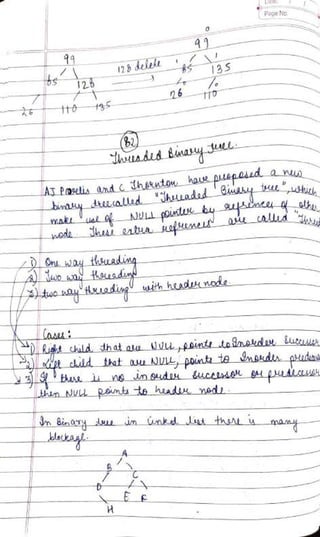 Date:
Page No.
99
85 128
26 110 135
128 delete
0
99
1 1
85 135
0 0
26 110
B2
Threaded Binary Tree.
AJ and C Thornton have proposed a new
binary tree called "Threaded Binary tree", which
make use of NULL pointer by refrences of other
node. These extra refrences are called "Thred
1) One way threading
2) Two way threading
3) two way threading with header node
Cases:
1) Right child that are NULL, points to Inorder successor
2) Left child that are NULL, points to Inorder predece
3) If there is no inorder successor or predecessor
then NULL points to header node.
In Binary tree in linkd list there is many
blockage.
A
B C
D E F
H